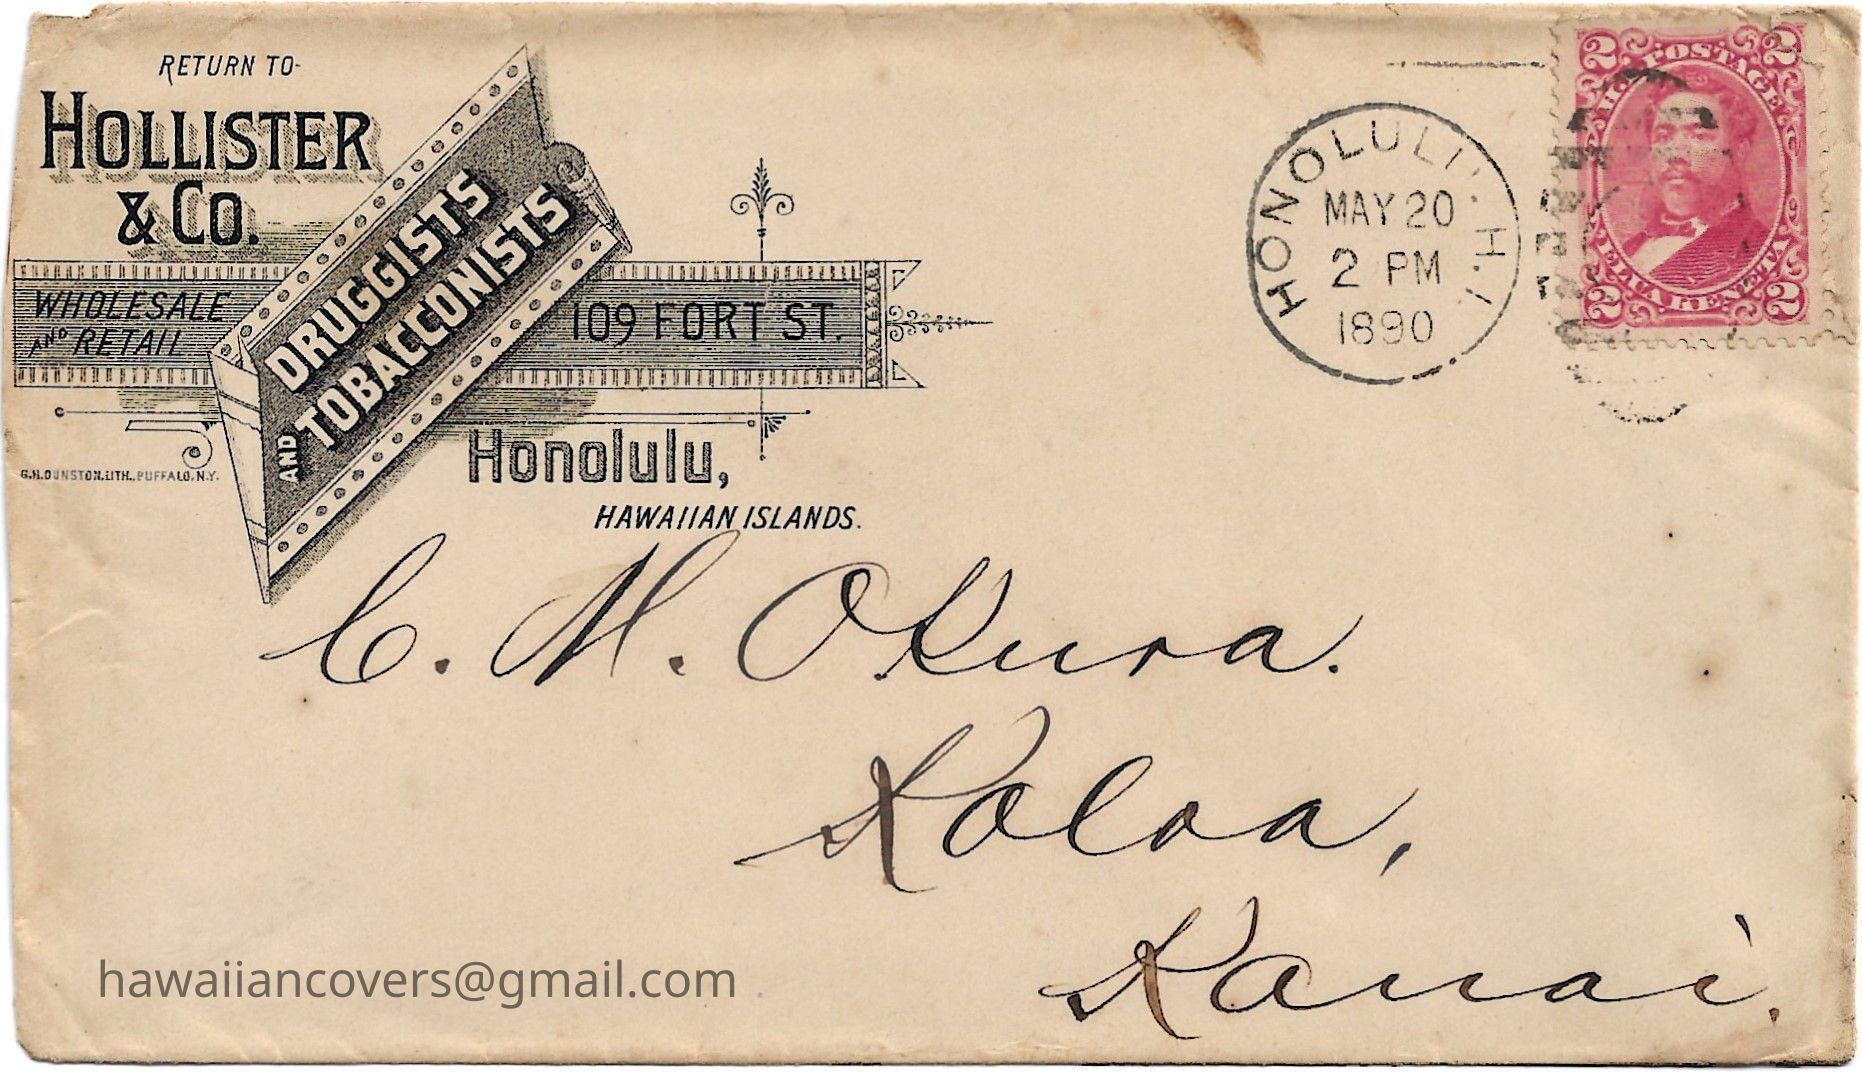 RETURN TO-
HOLLISTER
& CO.
WHOLESALE
AND RETAIL
DRUGGISTS
AND TOBACCONISTS
109 FORT ST.
Honolulu,
HAWAIIAN ISLANDS.
G.H. DUNSTON, LITH., BUFFALO, N.Y.
HONOLULU. H.I.
MAY 20
2 PM
1890
2 POSTAGE 2
2 ELUA KENETA 2
C. M. Okura.
Koloa,
Kauai.
hawaiiancovers@gmail.com